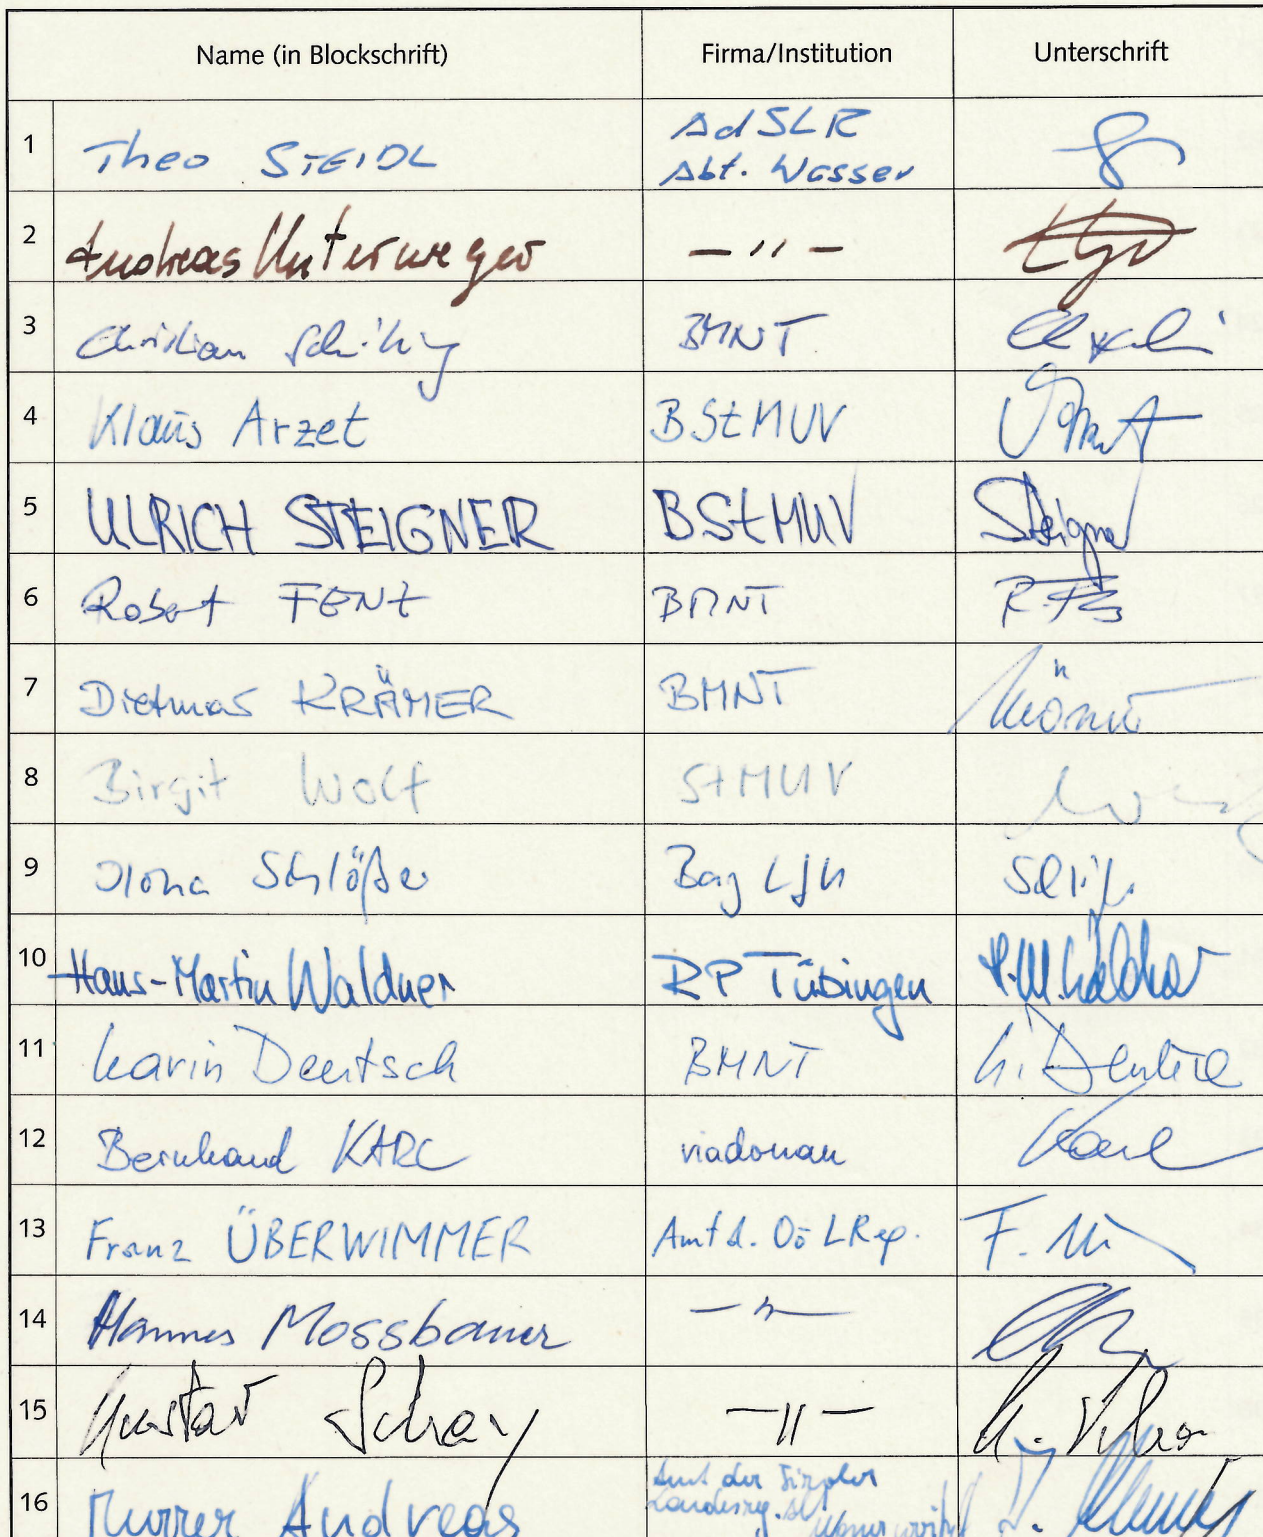 Name (in Blockschrift) Firma/Institution Unterschrift
1 Theo STEIDL AdSLR
Abt. Wasser
2 Andreas Unterweger — 〃 —
3 Christian Schilling BMNT
4 Klaus Arzet BStMUV
5 ULRICH STEIGNER BStMUV Steigner
6 Robert FENZ BMNT
7 Dietmar KRÄMER BMNT
8 Birgit Wolf StMUV
9 Ilona Schlößer Bay LfU
10 Hans-Martin Waldner RP Tübingen
11 Karin Deutsch BMNT K. Deutsch
12 Bernhard KARL viadonau Karl
13 Franz ÜBERWIMMER Amt d. Oö LReg.
14 Hannes Mossbauer — 〃 —
15 Gustav Schay — 〃 —
16 Murrer Andreas Amt der Tiroler
Landesreg.